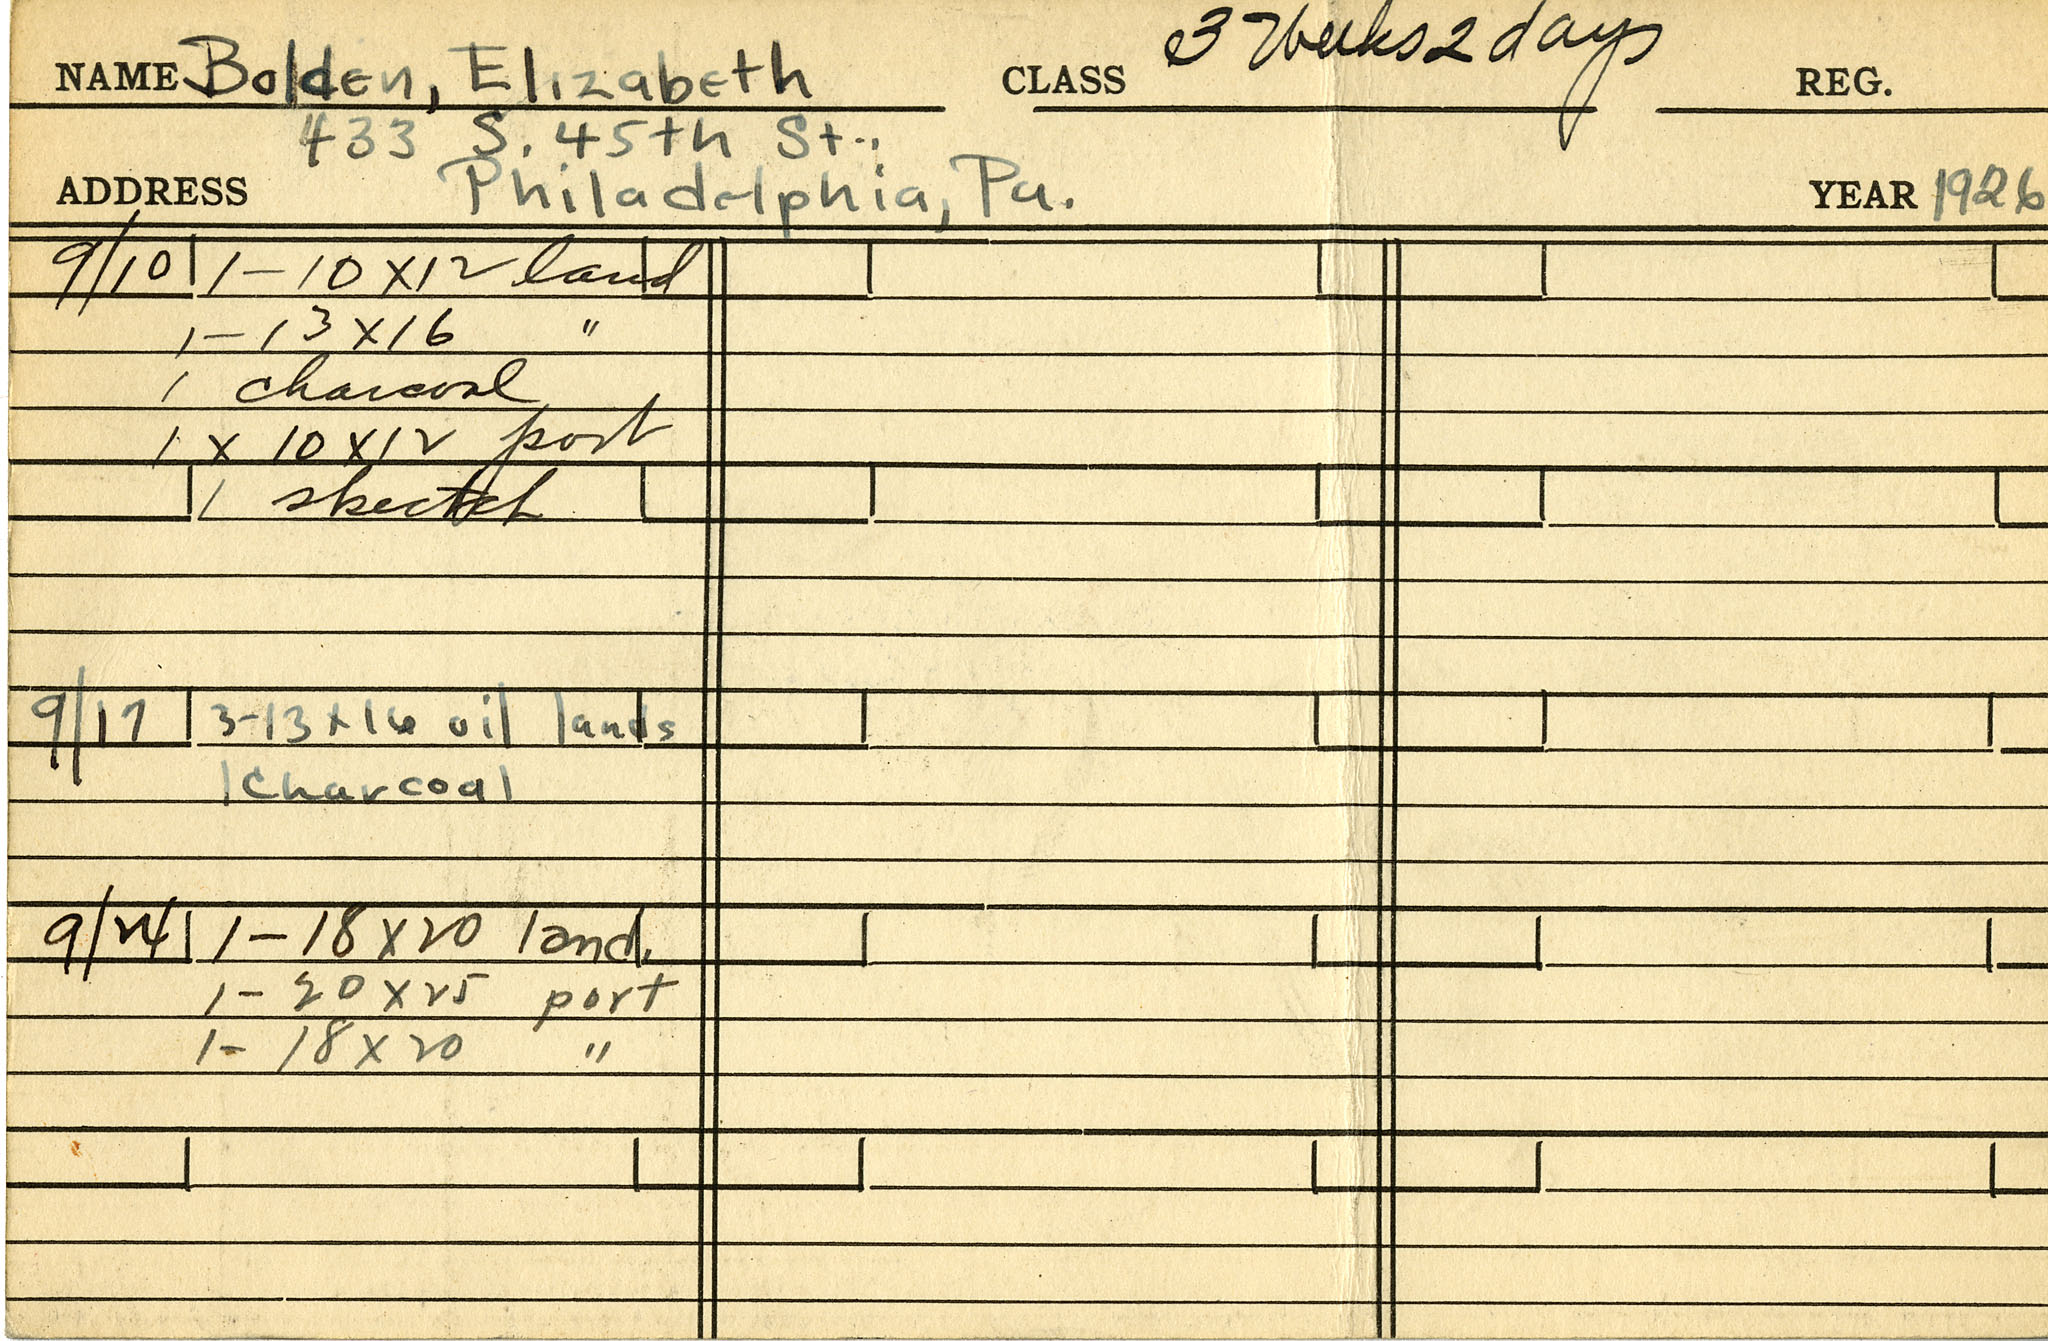 NAME Bolden, Elizabeth CLASS 3 Weeks 2 days REG.
433 S. 45th St.,
ADDRESS Philadelphia, Pa. YEAR 1926
9/10 1-10X12 land
1-13X16 "
1 charcoal
1 x 10X12 port
1 skectch
9/17 3-13x16 oil lands
1 Charcoal
9/24 1-18X20 land.
1-20X25 port
1-18X20 "